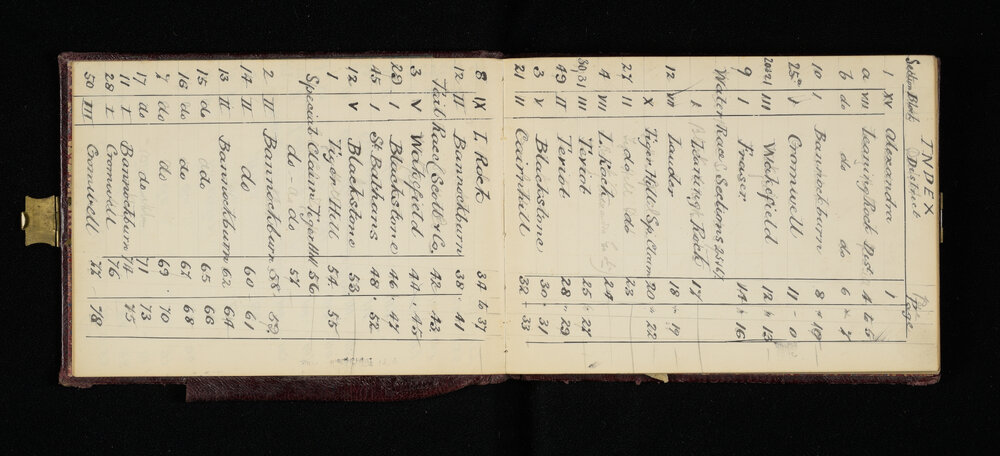 INDEX
Section Block District Page
1 XV Alexandra 1
a VIII Leaning Rock Dis. 4 to 5
b do do do 6 7
10 I Bannockburn 8 10
25 I Cromwell 11 - 0
20&21 III Wakefield 12 13
9 I Fraser 14 16
Water Race Sections 25&9
1 Leaning Rock 17
12 VII Lauder 18 19
X Tiger Hill Sp. Claim 20 22
27 II do do 23
4 VII L. Rock 24
30 31 III Teviot 25 27
49 II Teviot 28 29
3 V Blackstone 30 31
21 II Cairnhill 32 33
8 IX L. Rock 34 to 37
12 II Bannockburn 38 41
Tail Race (Scott & Co. 42 43
3 V Wakefield 44 45
29 I Blackstone 46 47
45 I St Bathans 48 52
12 V Blackstone 53
1 Tiger Hill 54 55
Special Claim Tiger Hill 56
do - do 57
2 II Bannockburn 58 59
14 II do 60 61
13 II Bannockburn 62 64
15 do do 65 66
16 do do 67 68
7 do do 69 70
17 do do 71 73
11 I Bannockburn 74 75
28 I Cromwell 76
50 III Cromwell 77 78